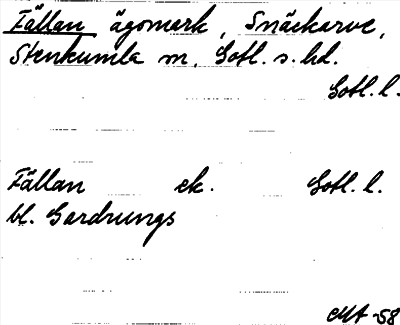 Fällan ägomark, Snäckarve,
Stenkumla sn, Gotl. s. hd.
Gotl. l.
Fällan ek. Gotl. l.
bl. Gardrungs
MA -58